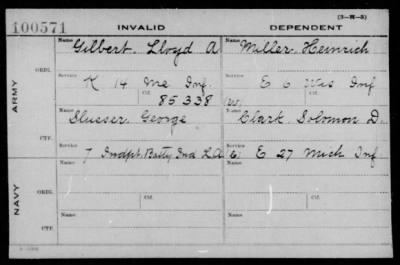 (3-M-3)
100571 INVALID DEPENDENT
Name Gilbert, Lloyd A Name Miller, Heinrich
ARMY
ORIG. Service K 14 Me Inf. Service E 6 Wis Inf
Ctf. 85338 Ctf. (W)
Name Slusser, George Name Clark, Solomon D.
CTF.
Service 7 Indpt. Batty Ind L.A Service (C) E 27 Mich Inf
NAVY
ORIG. Name Name
Ctf. Ctf.
CTF. Name Name